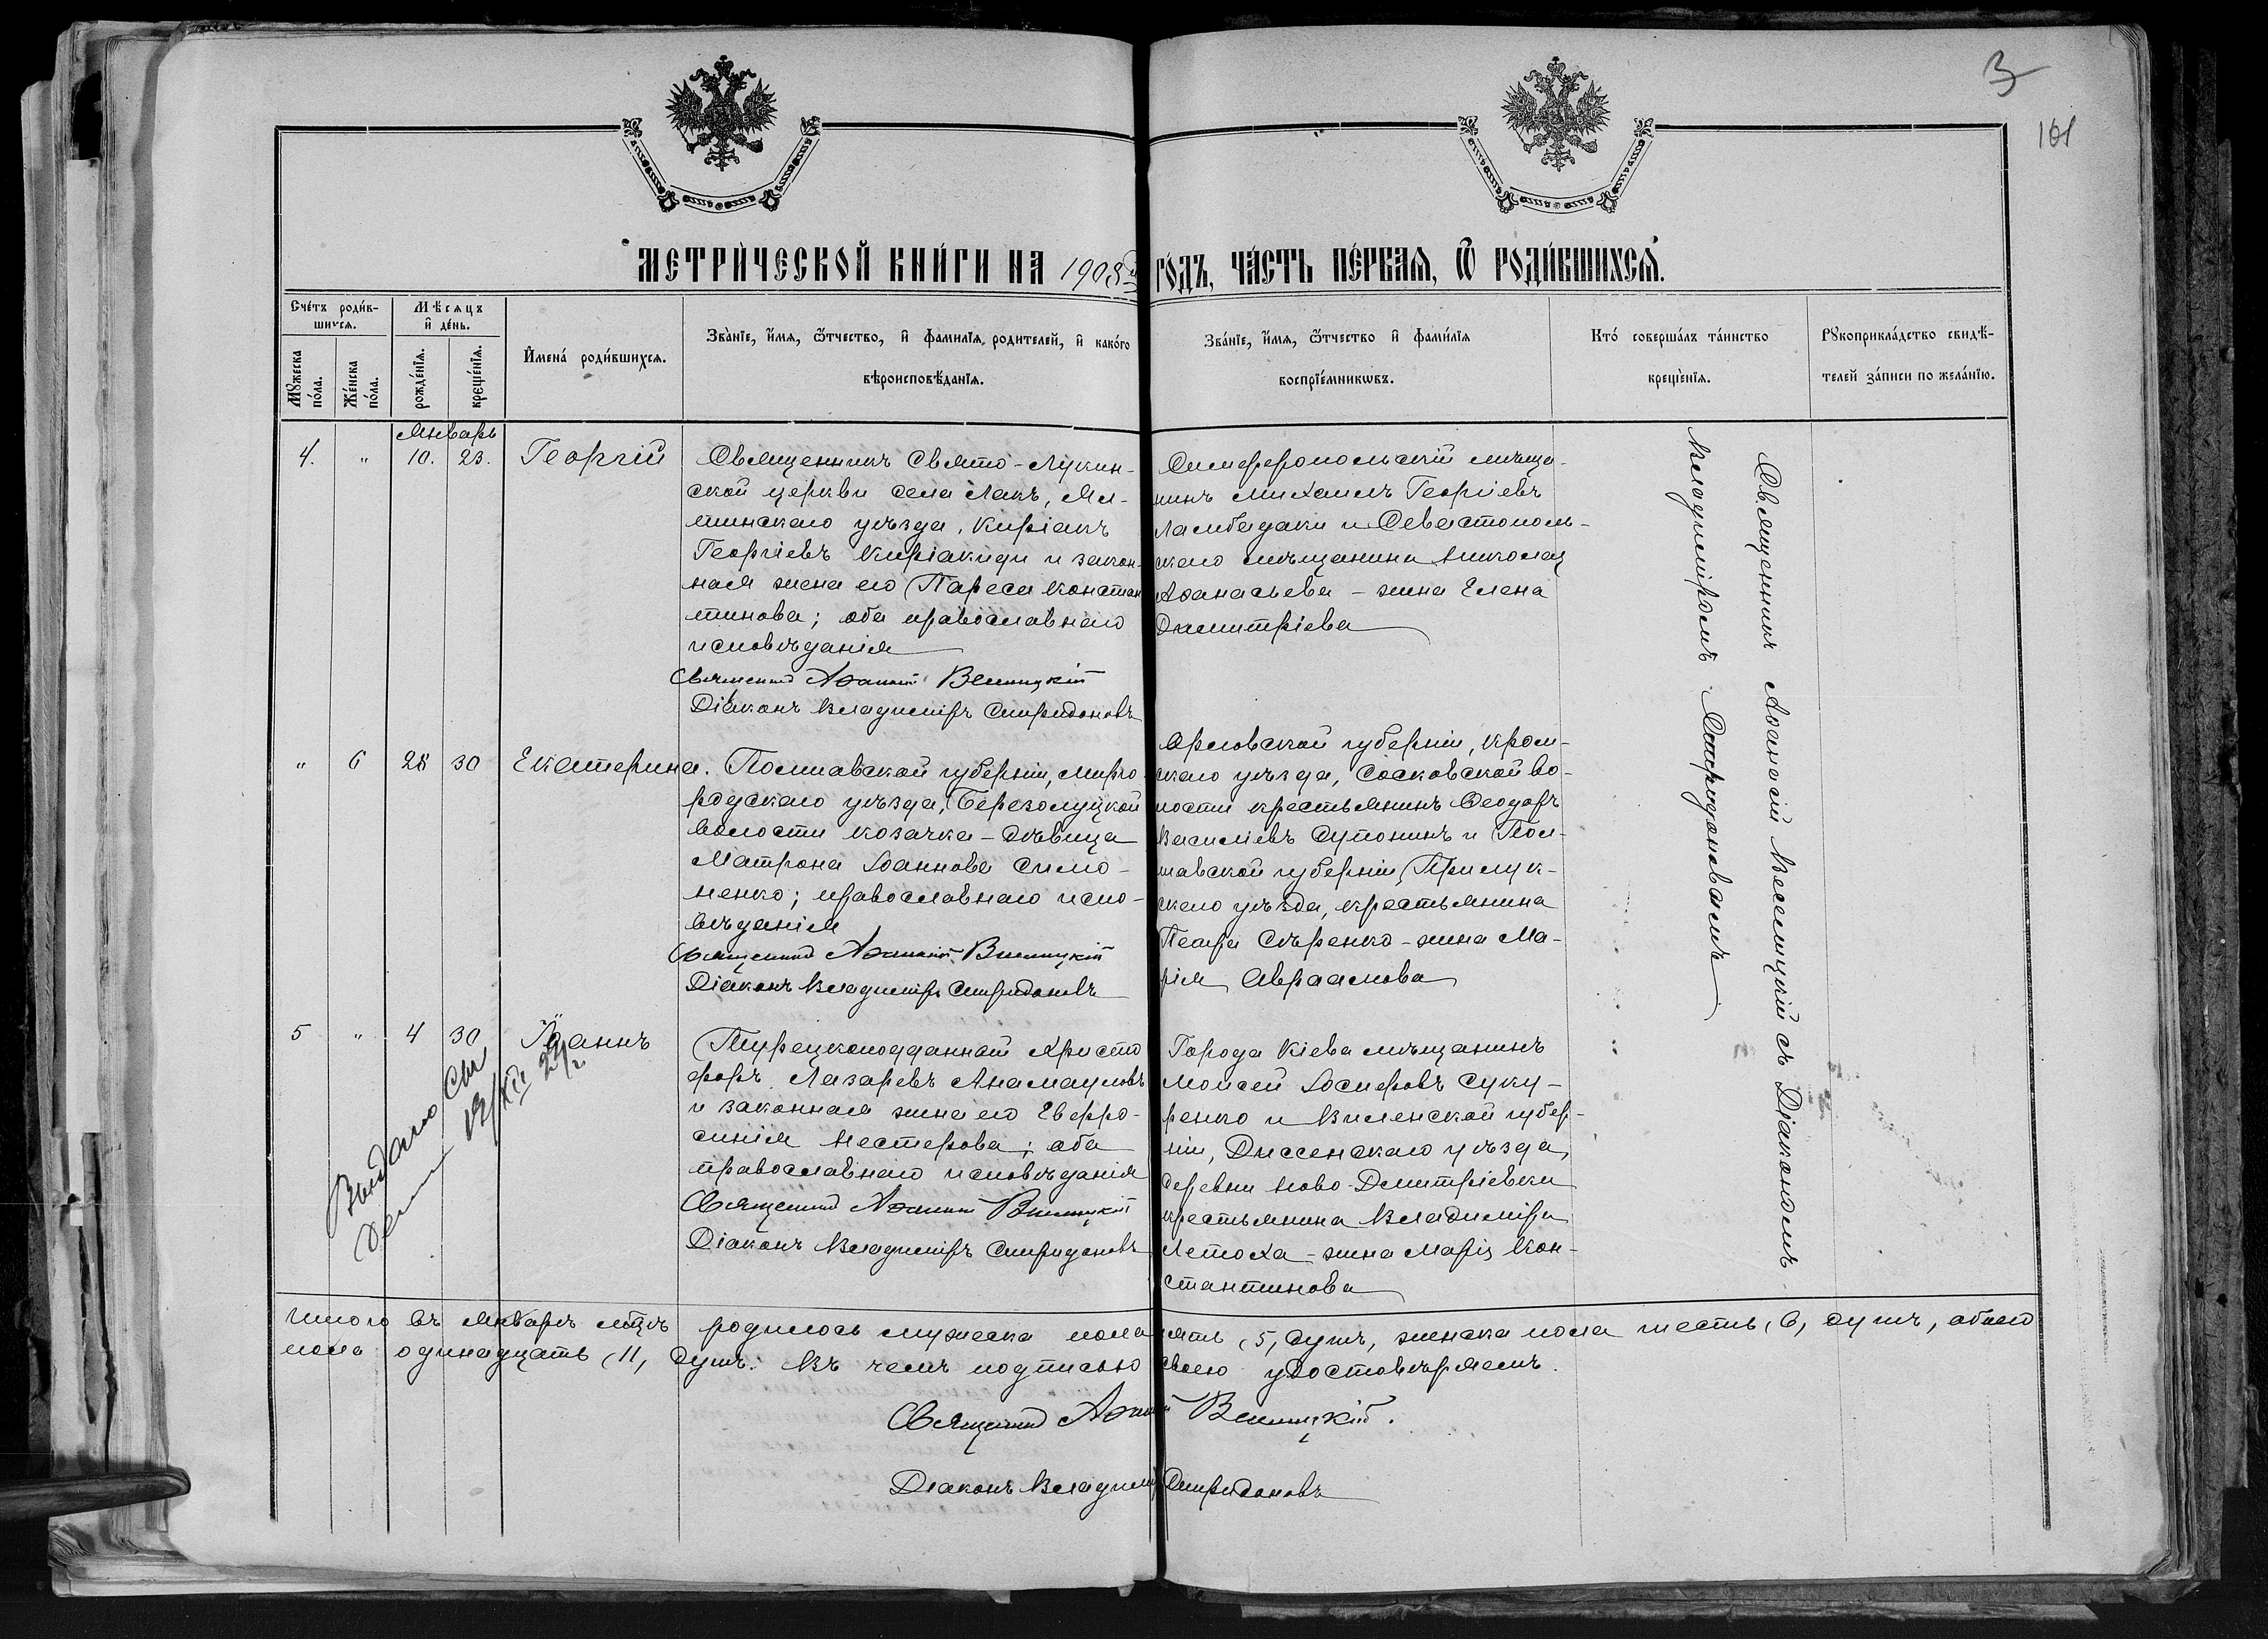 3
161
МЕТРИЧЕСКОЙ КНИГИ НА 1908й ГОДЪ, ЧАСТЬ ПЕРВАЯ, Ѿ РОДИВШИХСЯ.
Счетъ родившихся.
Мужеска пола.
Женска пола.
Мѣсяцъ и день.
рожденія.
крещенія.
Имена родившихся.
Званіе, имя, ѿчество, и фамилія родителей, и какого
вѣроисповѣданія.
Званіе, имя, ѿчество и фамилія
воспріемниковъ.
Кто совершалъ таинство
крещенія.
Рукоприкладство свидѣ-
телей записи по желанію.
Январь
4. " 10. 23. Георгій
Священникъ Свято-Лукин-
ской церкви села Лакъ, Ял-
тинскаго уѣзда, Киріакъ
Георгіевъ Киріакиди и закон-
ная жена его Параса Констан
тинова; оба православнаго
исповѣданія
Священникъ Аѳанасій Веселицкій
Діаконъ Владиміръ Спиридоновъ
Симферопольскій мѣща-
нинъ Михаилъ Георгіевъ
Ламбадаки и Севастополь-
скаго мѣщанина Николая
Аѳанасьева - жена Елена
Димитріева
" 6 28 30 Екатерина.
Полтавской губерніи, Мирго-
родскаго уѣзда, Березолуцкой
волости козачка - дѣвица
Матрона Іоаннова Симо-
ненко; православнаго испо-
вѣданія
Священникъ Аѳанасій Веселицкій
Діаконъ Владиміръ Спиридоновъ
Орловской губерніи, Кром-
скаго уѣзда, Сосковской во-
лости крестьянинъ Ѳеодоръ
Василіевъ Супонинъ и Пол-
тавской губерніи, Прилук-
скаго уѣзда, крестьянина
Петра Сѣренко - жена Ма-
рія Авраамова
5 " 4 30 Іоаннъ
Турецкоподданный Христо
форъ Лазаревъ Анамауловъ
и законная жена его Евфро-
синія Нестерова; оба
православнаго исповѣданія
Священникъ Аѳанасій Веселицкій
Діаконъ Владиміръ Спиридоновъ
Города Кіева мѣщанинъ
Моисей Іосифовъ Суку-
ренко и Виленской губер-
ніи, Дисненскаго уѣзда,
деревни Ново-Димитріевки
крестьянина Владиміра
Летоха - жена Марія Кон-
стантинова
Священникъ Аѳанасій Веселицкій съ Діакономъ
Владиміромъ Спиридоновымъ
Выдано
Итого въ Январѣ мѣсяцѣ родилось мужеска пола пять (5) душъ, женска пола шесть (6) душъ, обоего
пола одинадцать (11) душъ. Въ чемъ подписью своею удостовѣряемъ.
Священникъ Аѳанасій Веселицкій.
Діаконъ Владиміръ Спиридоновъ